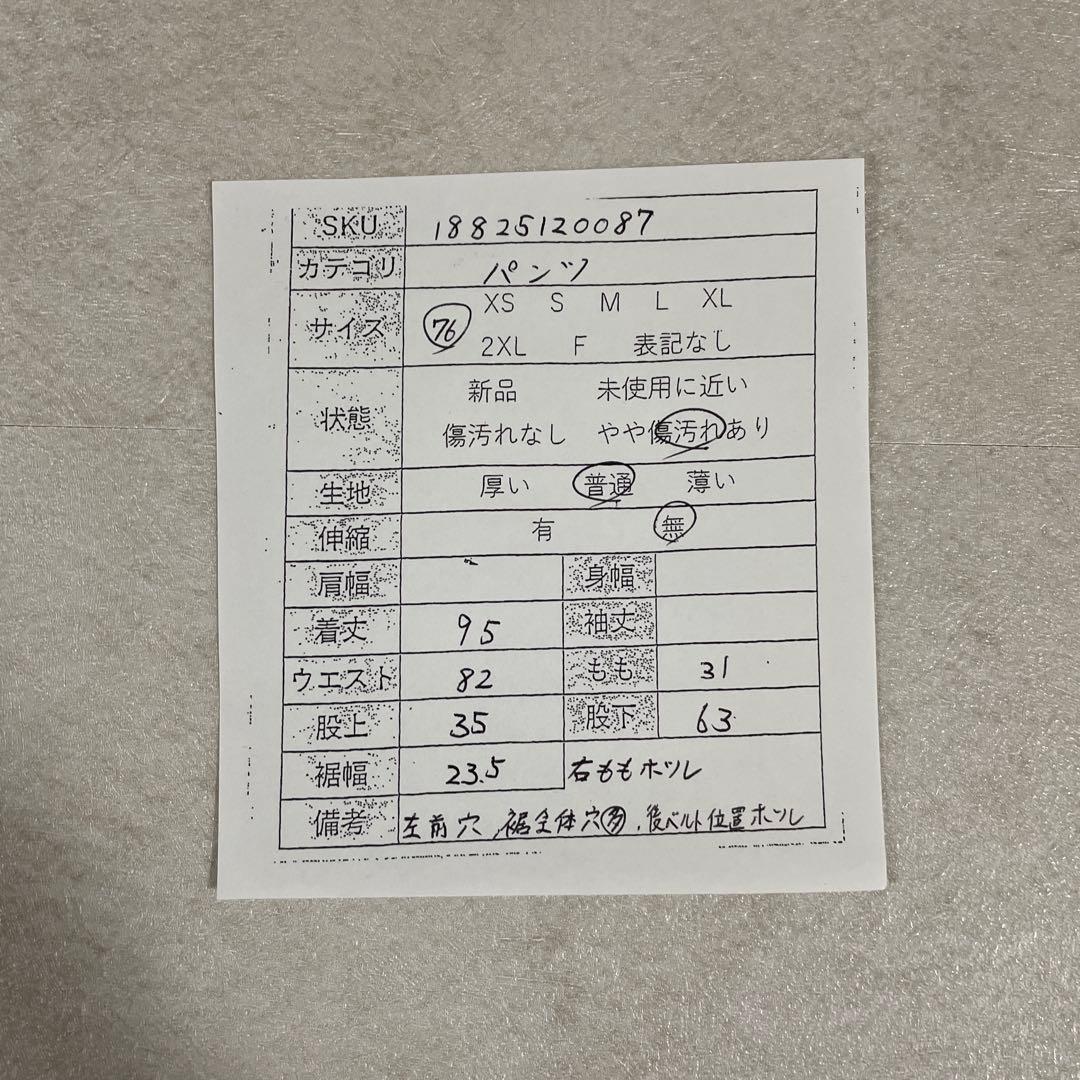 SKU 18825120087
カテゴリ パンツ
サイズ 76 XS S M L XL
2XL F 表記なし
状態 新品 未使用に近い
傷汚れなし やや傷汚れあり
生地 厚い 普通 薄い
伸縮 有 無
肩幅 身幅
着丈 95 袖丈
ウエスト 82 もも 31
股上 35 股下 63
裾幅 23.5 右ももホツレ
備考 左前穴、裾全体穴多、後ベルト位置ホツレ